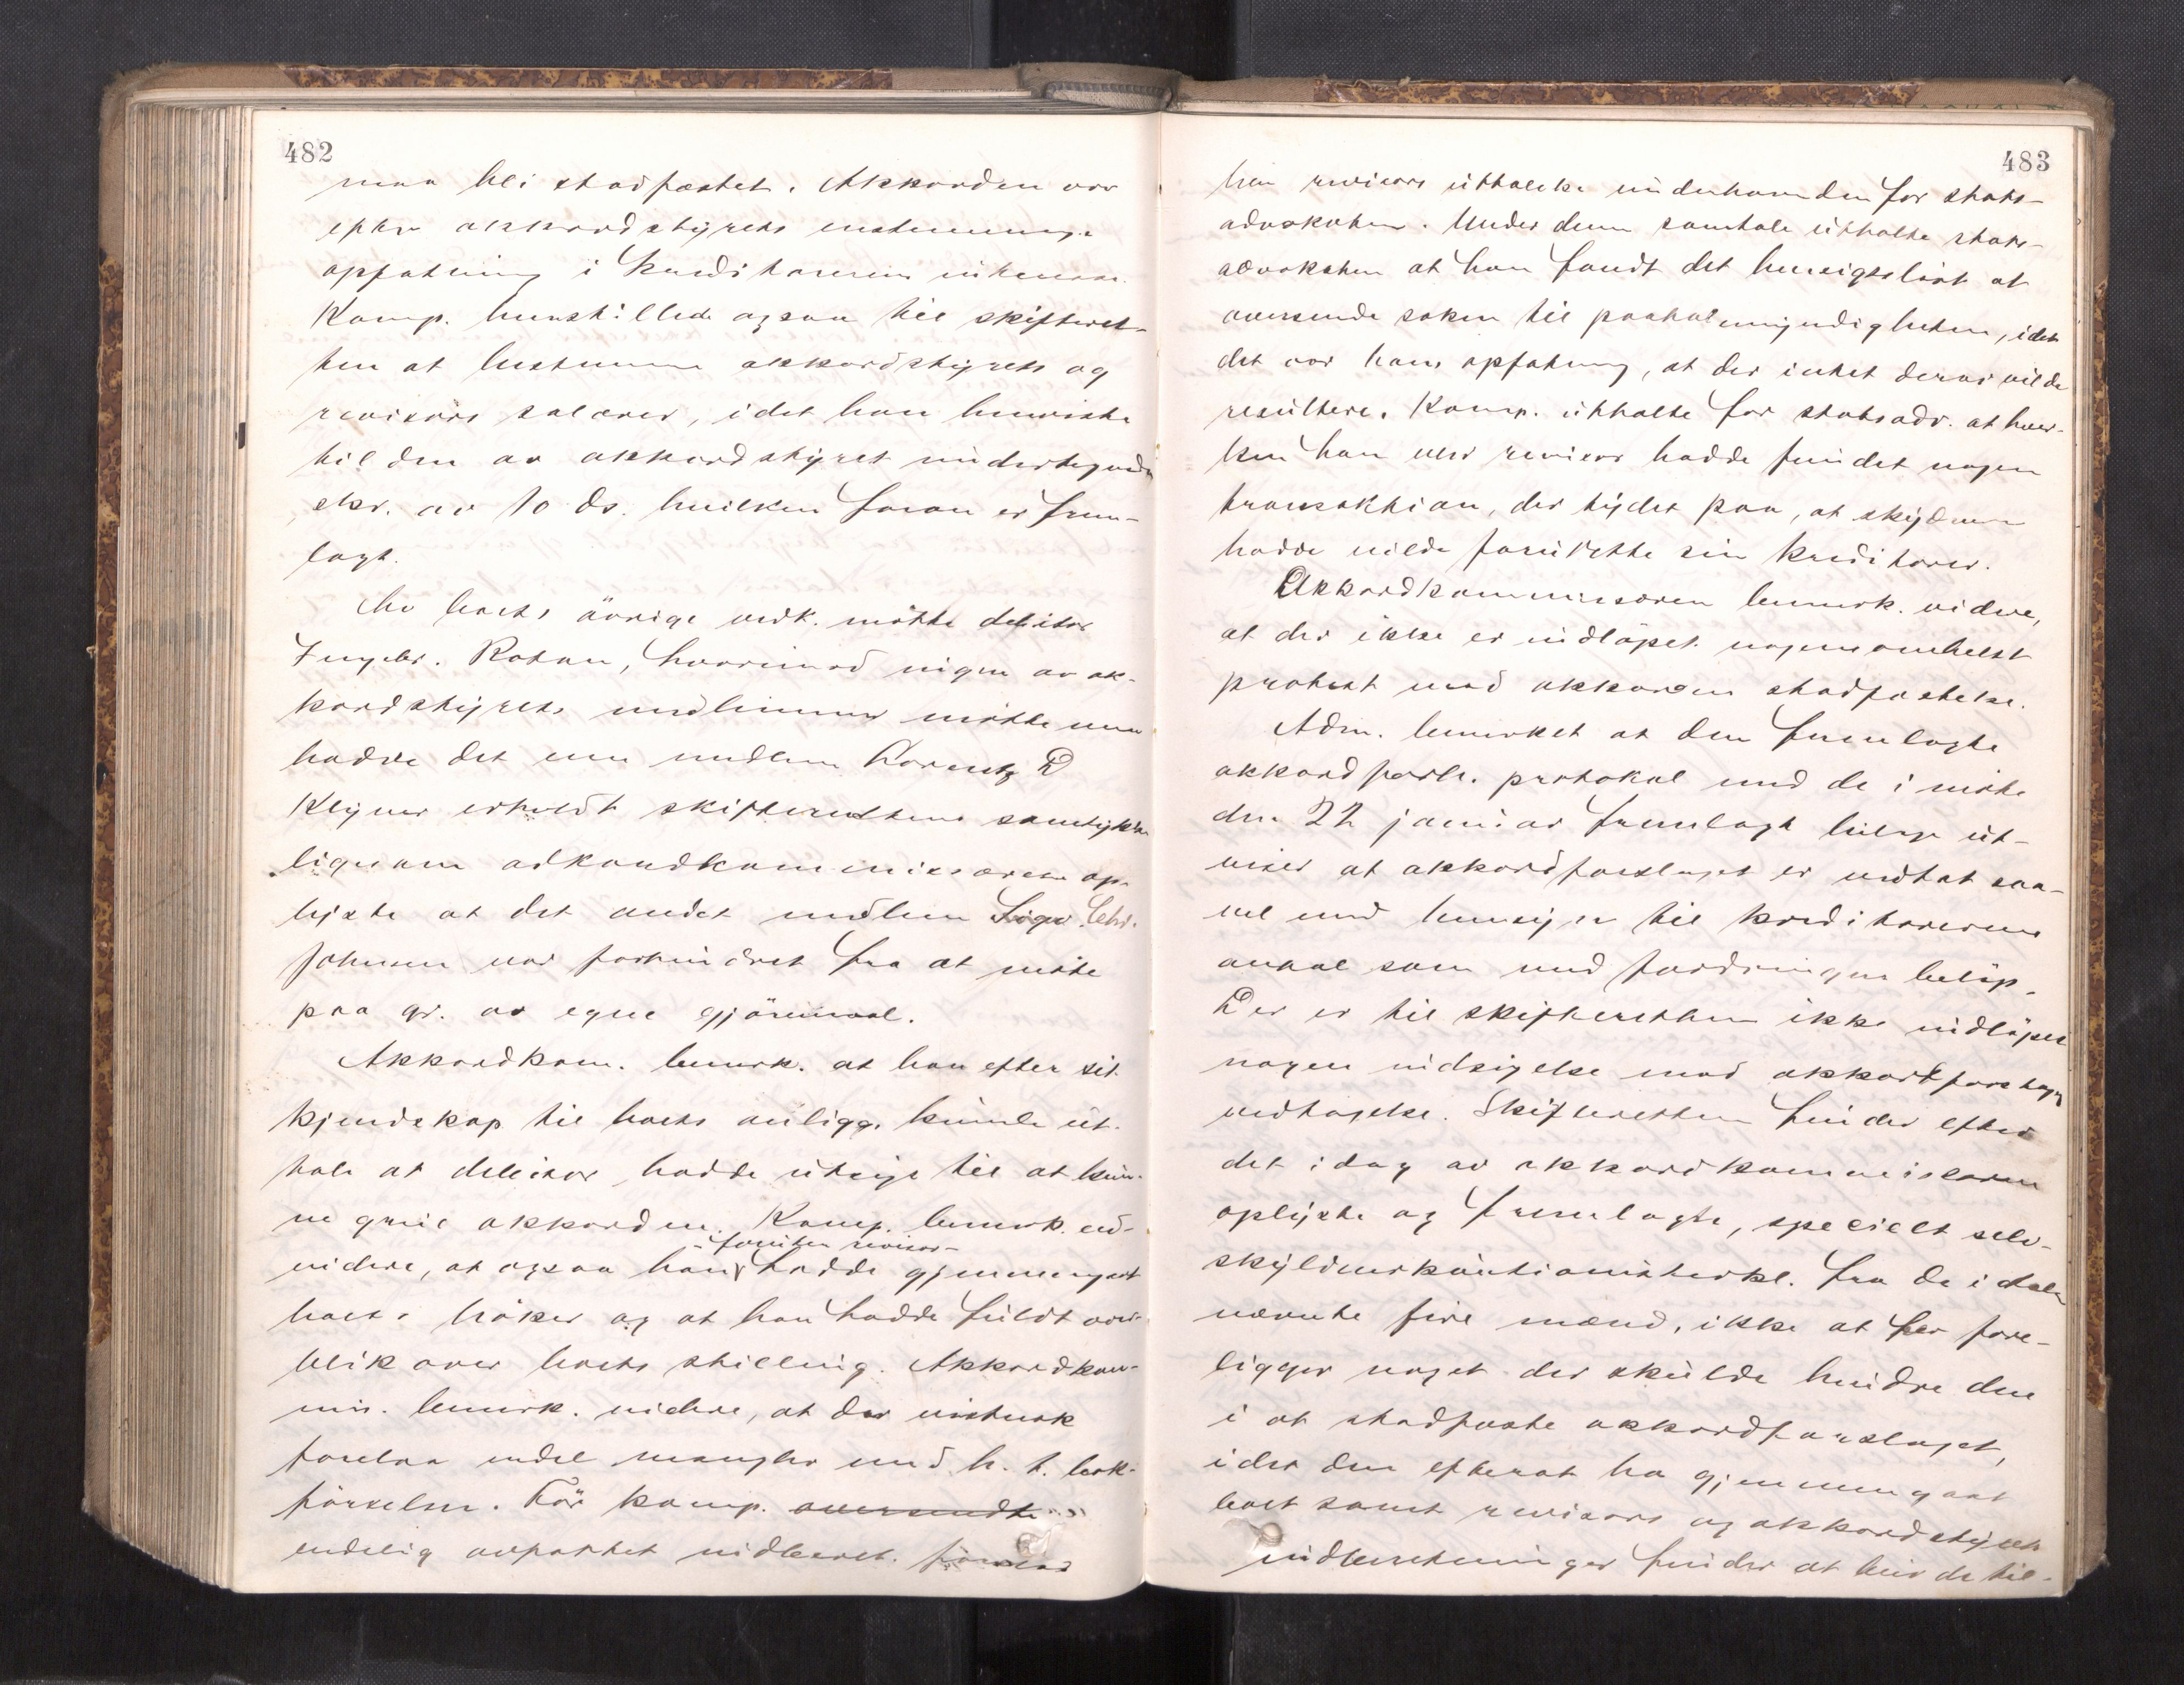 482
maa bli stadfæstet. Akkorden var
efter akkordstyrets enstemmige
opfatning i kreditorernes interesse.
Komp. henstillede ogsaa til skifteret-
ten at bestemme akkordstyrets og
revisors salærer, idet han henviste
til den av akkordstyret undertegnede
skr. av 10 ds. hvilken foran er frem-
lagt.
Av boets övrige vedk. mötte debitor
Ingebr. Rotan, hvorimod ingen av ak-
kordstyrets medlemmer mötte men
hadde det ene medlem Lorentz D
Klyver erholdt skifterettens samtykke
ligesom adkordkommissæren op-
lyste at det andet medlem Sigv. Chr.
Johnsen var forhindret fra at möte
paa gr. av egne gjöremaal.
Akkordkom. bemerk. at han efter sit
kjendskap til boets anligg. kunde ut-
tale at debitor hadde utsigt til at kun-
ne greie akkorden. Komp. bemerk. end-
-foruten revisor-
videre, at ogsaa han hadde gjennemgaat
boets böker og at han hadde fuldt over-
blik over boets stilling. Akkordkom-
mis. bemerk. videre, at der vistnok
forelaa endel mangler med h. t. bok-
förselen. För komp. oversendte
endelig avfattet indberet.
483
hen revisors uttalelse underhaanden for stats-
advokaten. Under denne samtale uttalte stats-
advokaten at han fandt det hensigtslöst at
oversende saken til paatalemyndigheten, idet
det var hans opfatning, at der intet derav vilde
resultere. Komp. uttalte for statsadv. at hver-
ken han eller revisor hadde fundet nogen
transaktion, der tydet paa, at skyldneren
hadde villet forurette sine kreditorer.
Akkordkommissæren bemerk. videre,
at der ikke er indlöpet nogensomhelst
protest mod akkorden stadfæstelse.
Adm. bemerket at den fremlagte
akkordforh. protokol med de i möte
den 22 januar fremlagt bilage ut-
viser at akkordforslaget er vedtat saa-
vel med hensyn til kreditorernes
antal som med fordringens belöp.
Der er til skifteretten ikke indlöpet
nogen indsigelse mod akkordforslagets
vedtagelse. Skifteretten finder efter
det idag av akkordkommissæren
oplyste og fremlagte, specielt selv-
skyldnerkautionisterkl. fra de i den
nævnte fire mænd, ikke at her fore-
ligger noget der skulde hindre den
i at stadfæste akkordforslaget,
idet den efterat ha gjennemgaat
boet samt revisors og akkordstyrets
indberetninger finder at hvis de til-